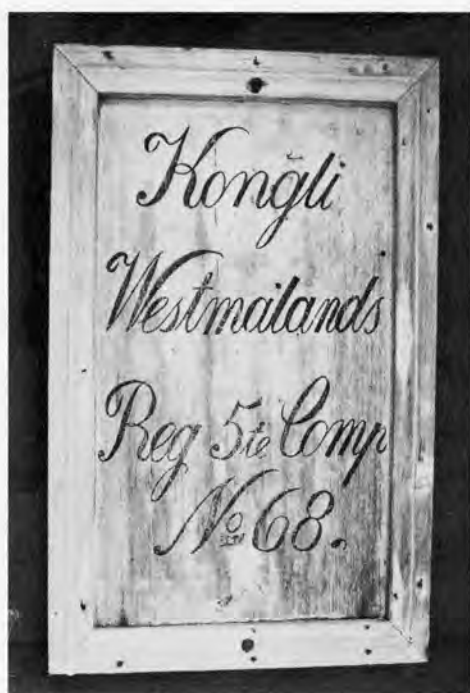 Konğli
Westmailands
Reg 5te Comp
No 68.